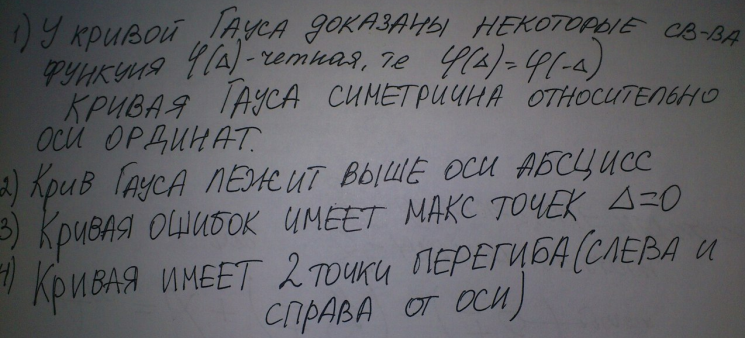 1) У КРИВОЙ ГАУСА ДОКАЗАНЫ НЕКОТОРЫЕ СВ-ВА
ФУНКЦИЯ φ(Δ)-четная, те φ(Δ)=φ(-Δ)
КРИВАЯ ГАУСА СИМЕТРИЧНА ОТНОСИТЕЛЬНО
ОСИ ОРДИНАТ.
2) КРИВ ГАУСА ЛЕЖИТ ВЫШЕ ОСИ АБСЦИСС
3) КРИВАЯ ОШИБОК ИМЕЕТ МАКС ТОЧЕК Δ=0
4) КРИВАЯ ИМЕЕТ 2 ТОЧКИ ПЕРЕГИБА (СЛЕВА И
СПРАВА ОТ ОСИ)